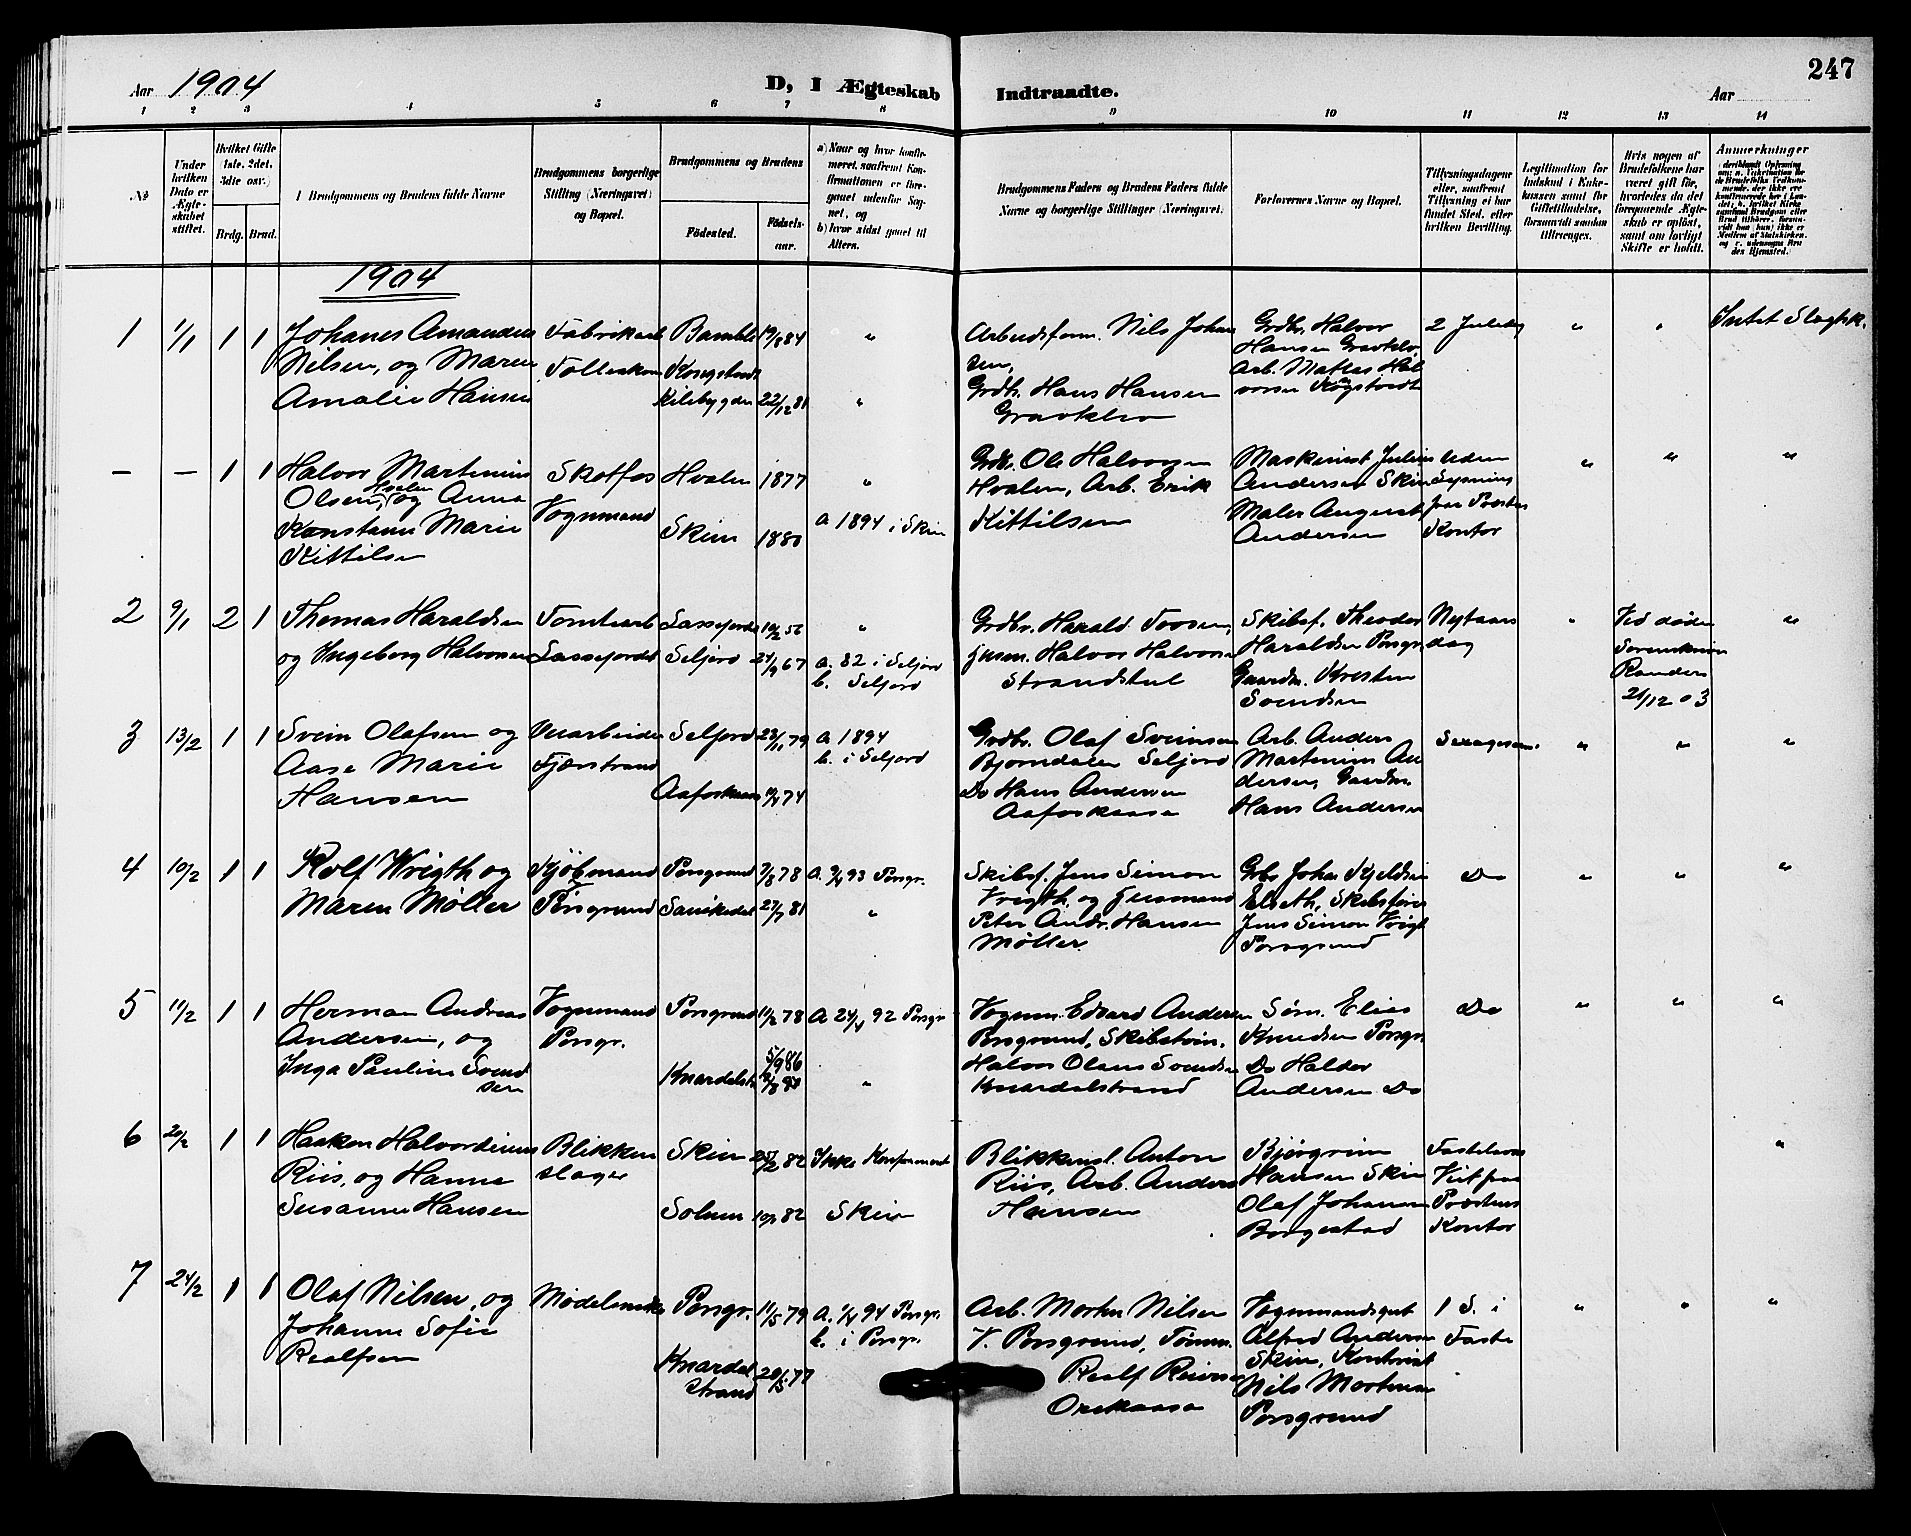 247
Aar 1904
D, I Ægteskab Indtraadte.
Aar
1 2 3 4 5 6 7 8 9 10 11 12 13 14
No
Under hvilken Dato er Ægteskabet stiftet.
Hvilket Gifte (1ste, 2det, 3die osv.)
Brdg. Brud.
Brudgommens og Brudens fulde Navne
Brudgommens borgerlige Stilling (Næringsvei) og Bopæl.
Brudgommens og Brudens
Fødested.
Fødselsaar.
a) Naar og hvor konfirmeret, saafremt Konfirmationen er foregaaet udenfor Sognet, og
b) hvor sidst gaaet til Alters.
Brudgommens Faders og Brudens Faders fulde Navne og borgerlige Stillinger (Næringsvei).
Forlovernes Navne og Bopæl.
Tillysningsdagene eller, saafremt Tillysning ei har fundet Sted, efter hvilken Bevilling.
Legitimation for Indskud i Enkekassen samt for Giftetilladelse, forsaavidt saadan tiltrænges.
Hvis nogen af Brudefolkene har været gift før, hvorledes da det foregaaende Ægteskab er opløst, samt om lovligt Skifte er holdt.
Anmærkninger
1904
1 1/1 1 1 Johanes Amandus Fabrikarb Bamble 19/8 84 "
Nilsen, og Maren Folleskou Kongstvedt
Amalie Hansen Kilebygden 22/12 81 "
Arbeidsform. Nils Johan
sen,
Grdbr. Hans Hansen
Gravklev
Grdbr. Halvor
Hansen Gravklev
Arb. Matias Hal
vorsen
2 Juledag " " Intet Slægtsk.
— — 1 1 Halvor Martinius Skotfos Hvalen 1877 "
Olsen Hvalen, og Anna Vognmand
Konstanse Marie Skien 1880 a 1894 i Skien
Kittilsen
Grdbr. Ole Halvorsen
Hvalen, Arb. Erik
Kittilsen
Maskinist Julius
Andersen Skien
Maler August
Andersen
Uden
Lysning
fra Præstens
Kontor
" " "
2 9/1 2 1 Thomas Haraldsen Tomtearb Lassefjordet 10/2 56 "
og Ingeborg Halvorsen Lassefjordet Seljord 24/9 67 a. 82 i Seljord
b. Seljord
Grdbr. Harald Toosen,
Husm. Halvor Halvorsen
Strandstul
Skibsf. Theodor
Haraldsen Porsgr.
Gaardm. Kresten
Svendsen
Nytaars
dag
" Ved døden
Randers
21/12 03
"
3 13/2 1 1 Svein Olafsen og Veiarbeider Seljord 23/11 79 a 1894
Aase Marie Fjærestrand b. i Seljord
Hansen Aafoskaasa 74
Grdbr. Olaf Sveinsen
Bjorndalen Seljord
Do Hans Andersen
Aafoskaasa
Arb. Anders
Martinius An
dersen, Gaardm.
Hans Andersen
Sexagesima " " "
4 10/2 1 1 Rolf Wrigth og Kjøbmand Porsgrund 7/8 78 a. 93 Porsgr.
Maren Møller Porsgrund Sanikedal 27/7 81 "
Skibsf. Jens Simon
Vrigth og Husmand
Peter Andr. Hansen
Møller.
Grbr Johan Kjeldsen
Elseth, Skibsfører
Jens Simon Vrigt
Porsgrund
Do " " "
5 11/2 1 1 Herman Andreas Vognmand Porsgrund 11/2 78 a 24/4 92 Porsgr.
Andersen, og Porsgr. 5/9 86
Inga Pauline Svend Knardalstr "
sen
Vognm. Edvard Andersen
Porsgrund, Skibstøm.
Halvor Olaus Svendsen
Knardalstrand
Søm. Elias
Knudsen Porsgr.
Do Haldor
Andersen Do
Do " " "
6 20/2 1 1 Haakon Halvordinius Blikken Skien 25/2 82 Ikke Konfirmeret
Riis, og Hanna slager
Susanne Hansen Solum 82 Skien
Blikkensl. Anton
Riis, Arb. Anders
Hansen
Bjørgvin
Hansen Skien
Olaf Johansen
Borgestad
Fastelavn
Vit fra
Præstens
Kontor
"
7 24/2 1 1 Olaf Nilsen, og Modelsnedker Porsgr. 11/5 79 a. 94 Porsgr.
Johanne Sofie b. i Porsgr.
Realfsen Knardal
strand 20/5 77
Arb. Morten Nilsen
V. Porsgrund, Tømm.
Realf Reiersen
Orekaasa
Vognmandsgut
Alfred Andersen
Skien, Kontorist
Nils Mortensen
Porsgrund
1 S. i
Faste
" " "